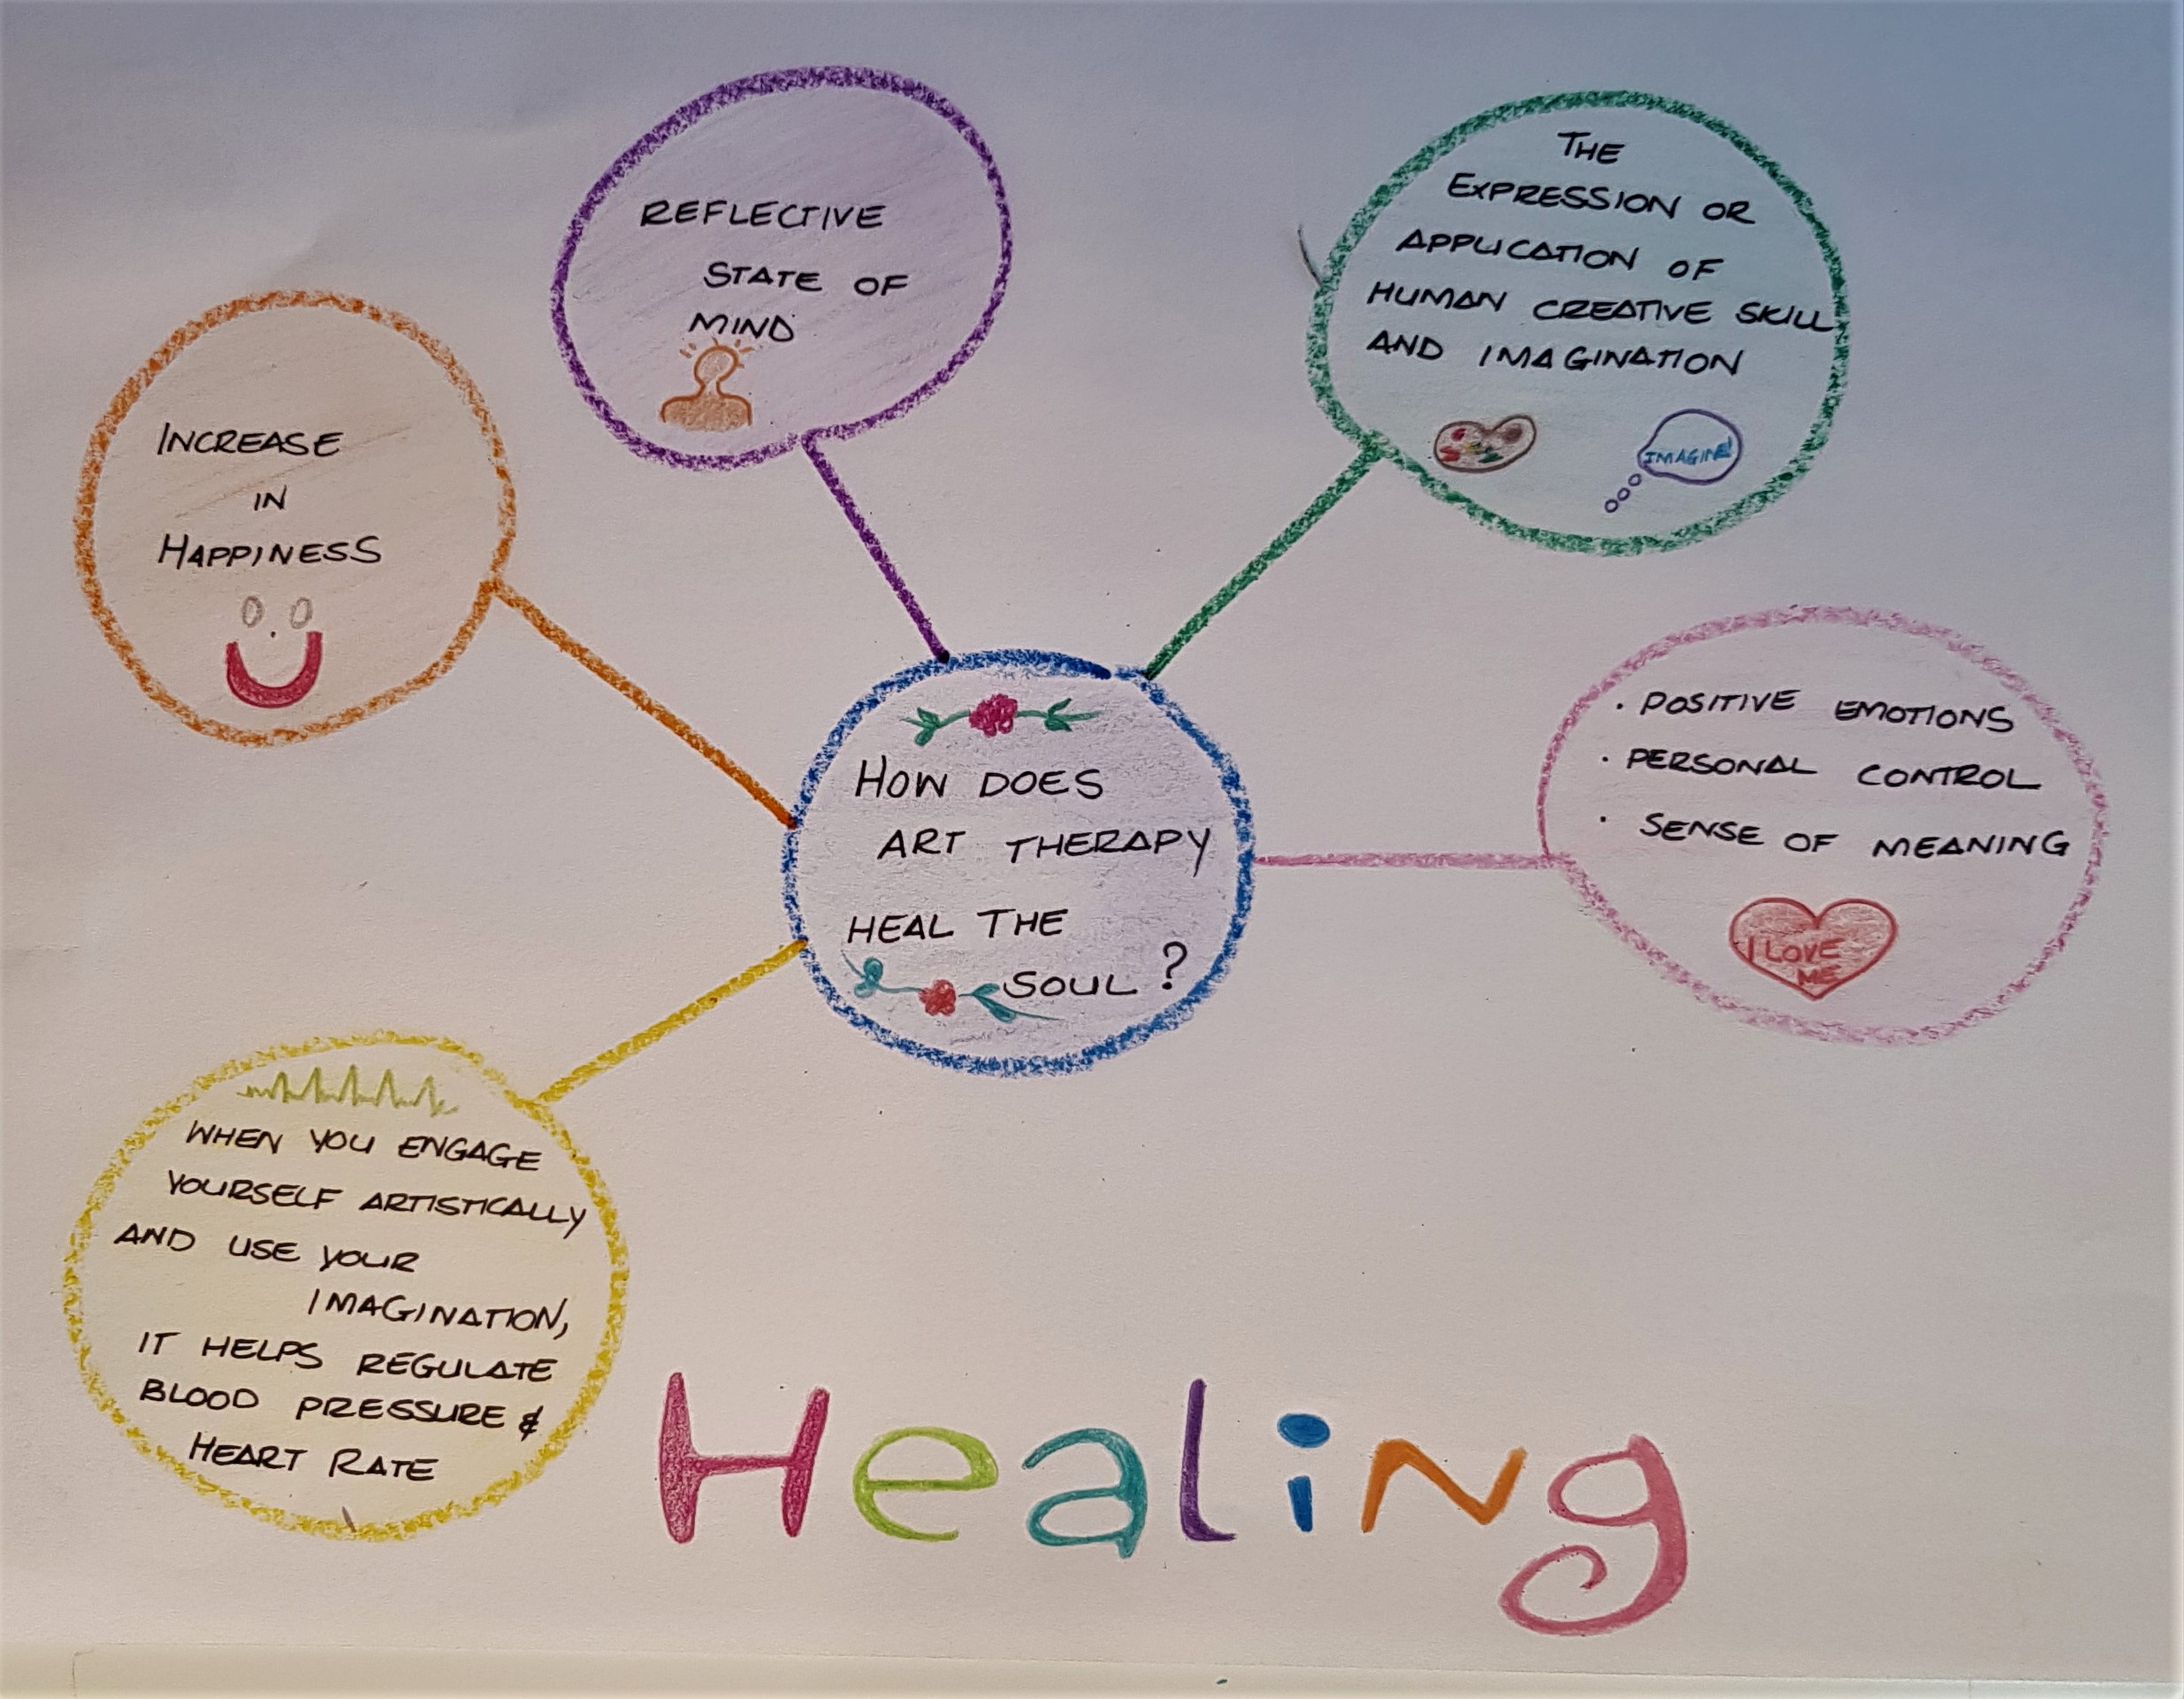 HOW DOES
ART THERAPY
HEAL THE
SOUL?
INCREASE
IN
HAPPINESS
REFLECTIVE
STATE OF
MIND
THE
EXPRESSION OR
APPLICATION OF
HUMAN CREATIVE SKILL
AND IMAGINATION
IMAGINE!
· POSITIVE EMOTIONS
· PERSONAL CONTROL
· SENSE OF MEANING
I LOVE
ME
WHEN YOU ENGAGE
YOURSELF ARTISTICALLY
AND USE YOUR
IMAGINATION,
IT HELPS REGULATE
BLOOD PRESSURE &
HEART RATE
Healing